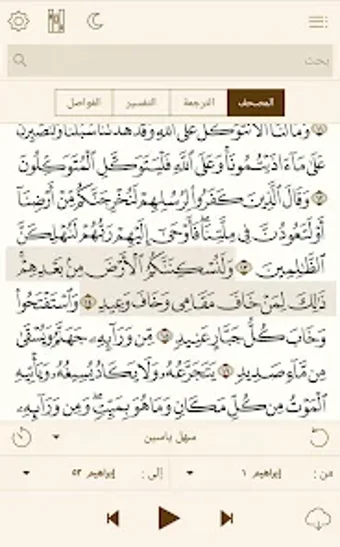 بحث
المصحف الترجمة التفسير الفواصل
وَمَا لَنَا أَلَّا نَتَوَكَّلَ عَلَى اللَّهِ وَقَدْ هَدَانَا سُبُلَنَا وَلَنَصْبِرَنَّ
عَلَىٰ مَا آذَيْتُمُونَا وَعَلَى اللَّهِ فَلْيَتَوَكَّلِ الْمُتَوَكِّلُونَ
۝١٢ وَقَالَ الَّذِينَ كَفَرُوا لِرُسُلِهِمْ لَنُخْرِجَنَّكُم مِّنْ أَرْضِنَا
أَوْ لَتَعُودُنَّ فِي مِلَّتِنَا فَأَوْحَىٰ إِلَيْهِمْ رَبُّهُمْ لَنُهْلِكَنَّ
الظَّالِمِينَ ۝١٣ وَلَنُسْكِنَنَّكُمُ الْأَرْضَ مِن بَعْدِهِمْ
ذَٰلِكَ لِمَنْ خَافَ مَقَامِي وَخَافَ وَعِيدِ ۝١٤ وَاسْتَفْتَحُوا
وَخَابَ كُلُّ جَبَّارٍ عَنِيدٍ ۝١٥ مِّن وَرَائِهِ جَهَنَّمُ وَيُسْقَىٰ
مِن مَّاءٍ صَدِيدٍ ۝١٦ يَتَجَرَّعُهُ وَلَا يَكَادُ يُسِيغُهُ وَيَأْتِيهِ
الْمَوْتُ مِن كُلِّ مَكَانٍ وَمَا هُوَ بِمَيِّتٍ وَمِن وَرَائِهِ
سهل ياسين
من: إبراهيم ١ إلى: إبراهيم ٥٢